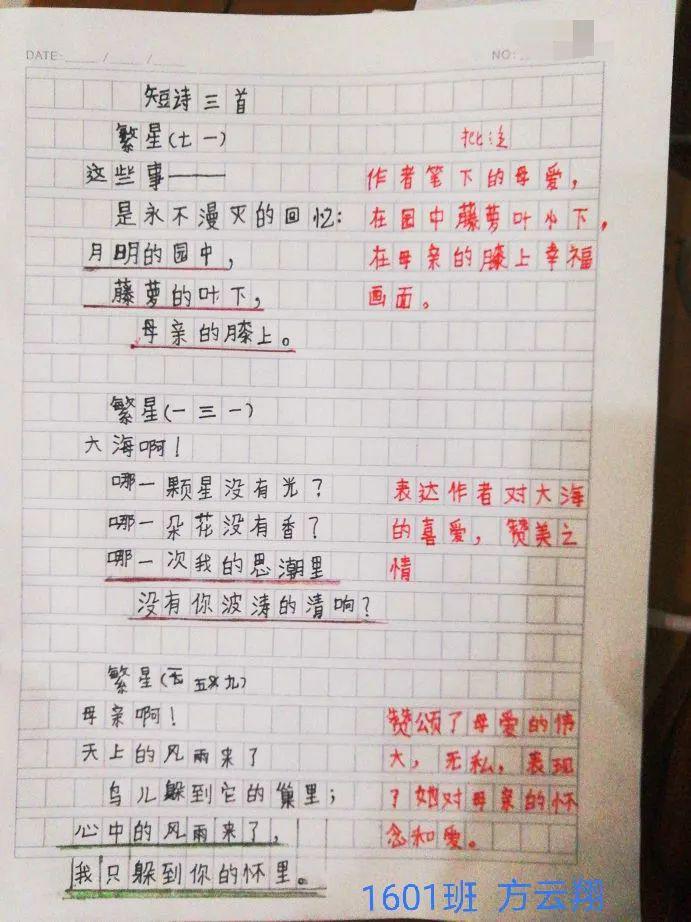 DATE: / / /
NO:
短诗三首
繁星(七一)
批注
这些事——
作者笔下的母爱，
是永不漫灭的回忆：
在园中藤萝叶小下，
月明的园中，
在母亲的膝上幸福
藤萝的叶下，
画面。
母亲的膝上。
繁星(一三一)
大海啊！
哪一颗星没有光？
表达作者对大海
哪一朵花没有香？
的喜爱，赞美之
哪一次我的思潮里
情
没有你波涛的清响？
繁星( 五九)
母亲啊！
赞颂了母爱的伟
天上的风雨来了
大，无私，表现
鸟儿躲到它的巢里；
了她对母亲的怀
心中的风雨来了，
念和爱。
我只躲到你的怀里。
1601班 方云翔